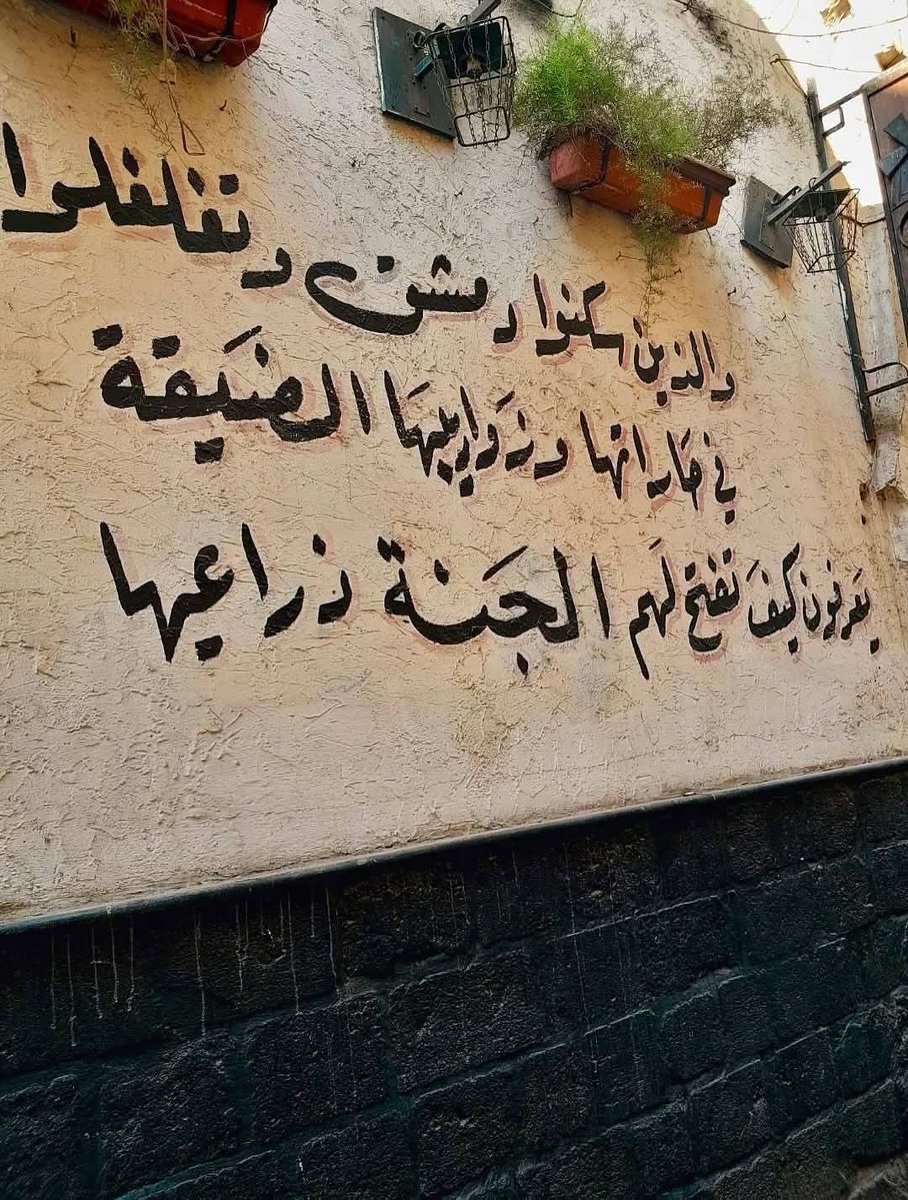 والذين سكنوا دمشق وتغلغلوا
في حَاراتها وزوَاريبهَا الضَيقة
يَعرفون كيفَ تفتح لهَم الجَنة ذراعيها